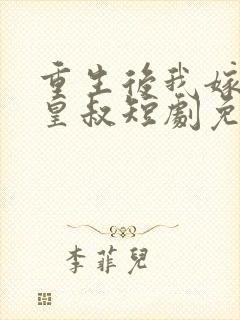 重生後我嫁
皇叔短劇免
李菲兒